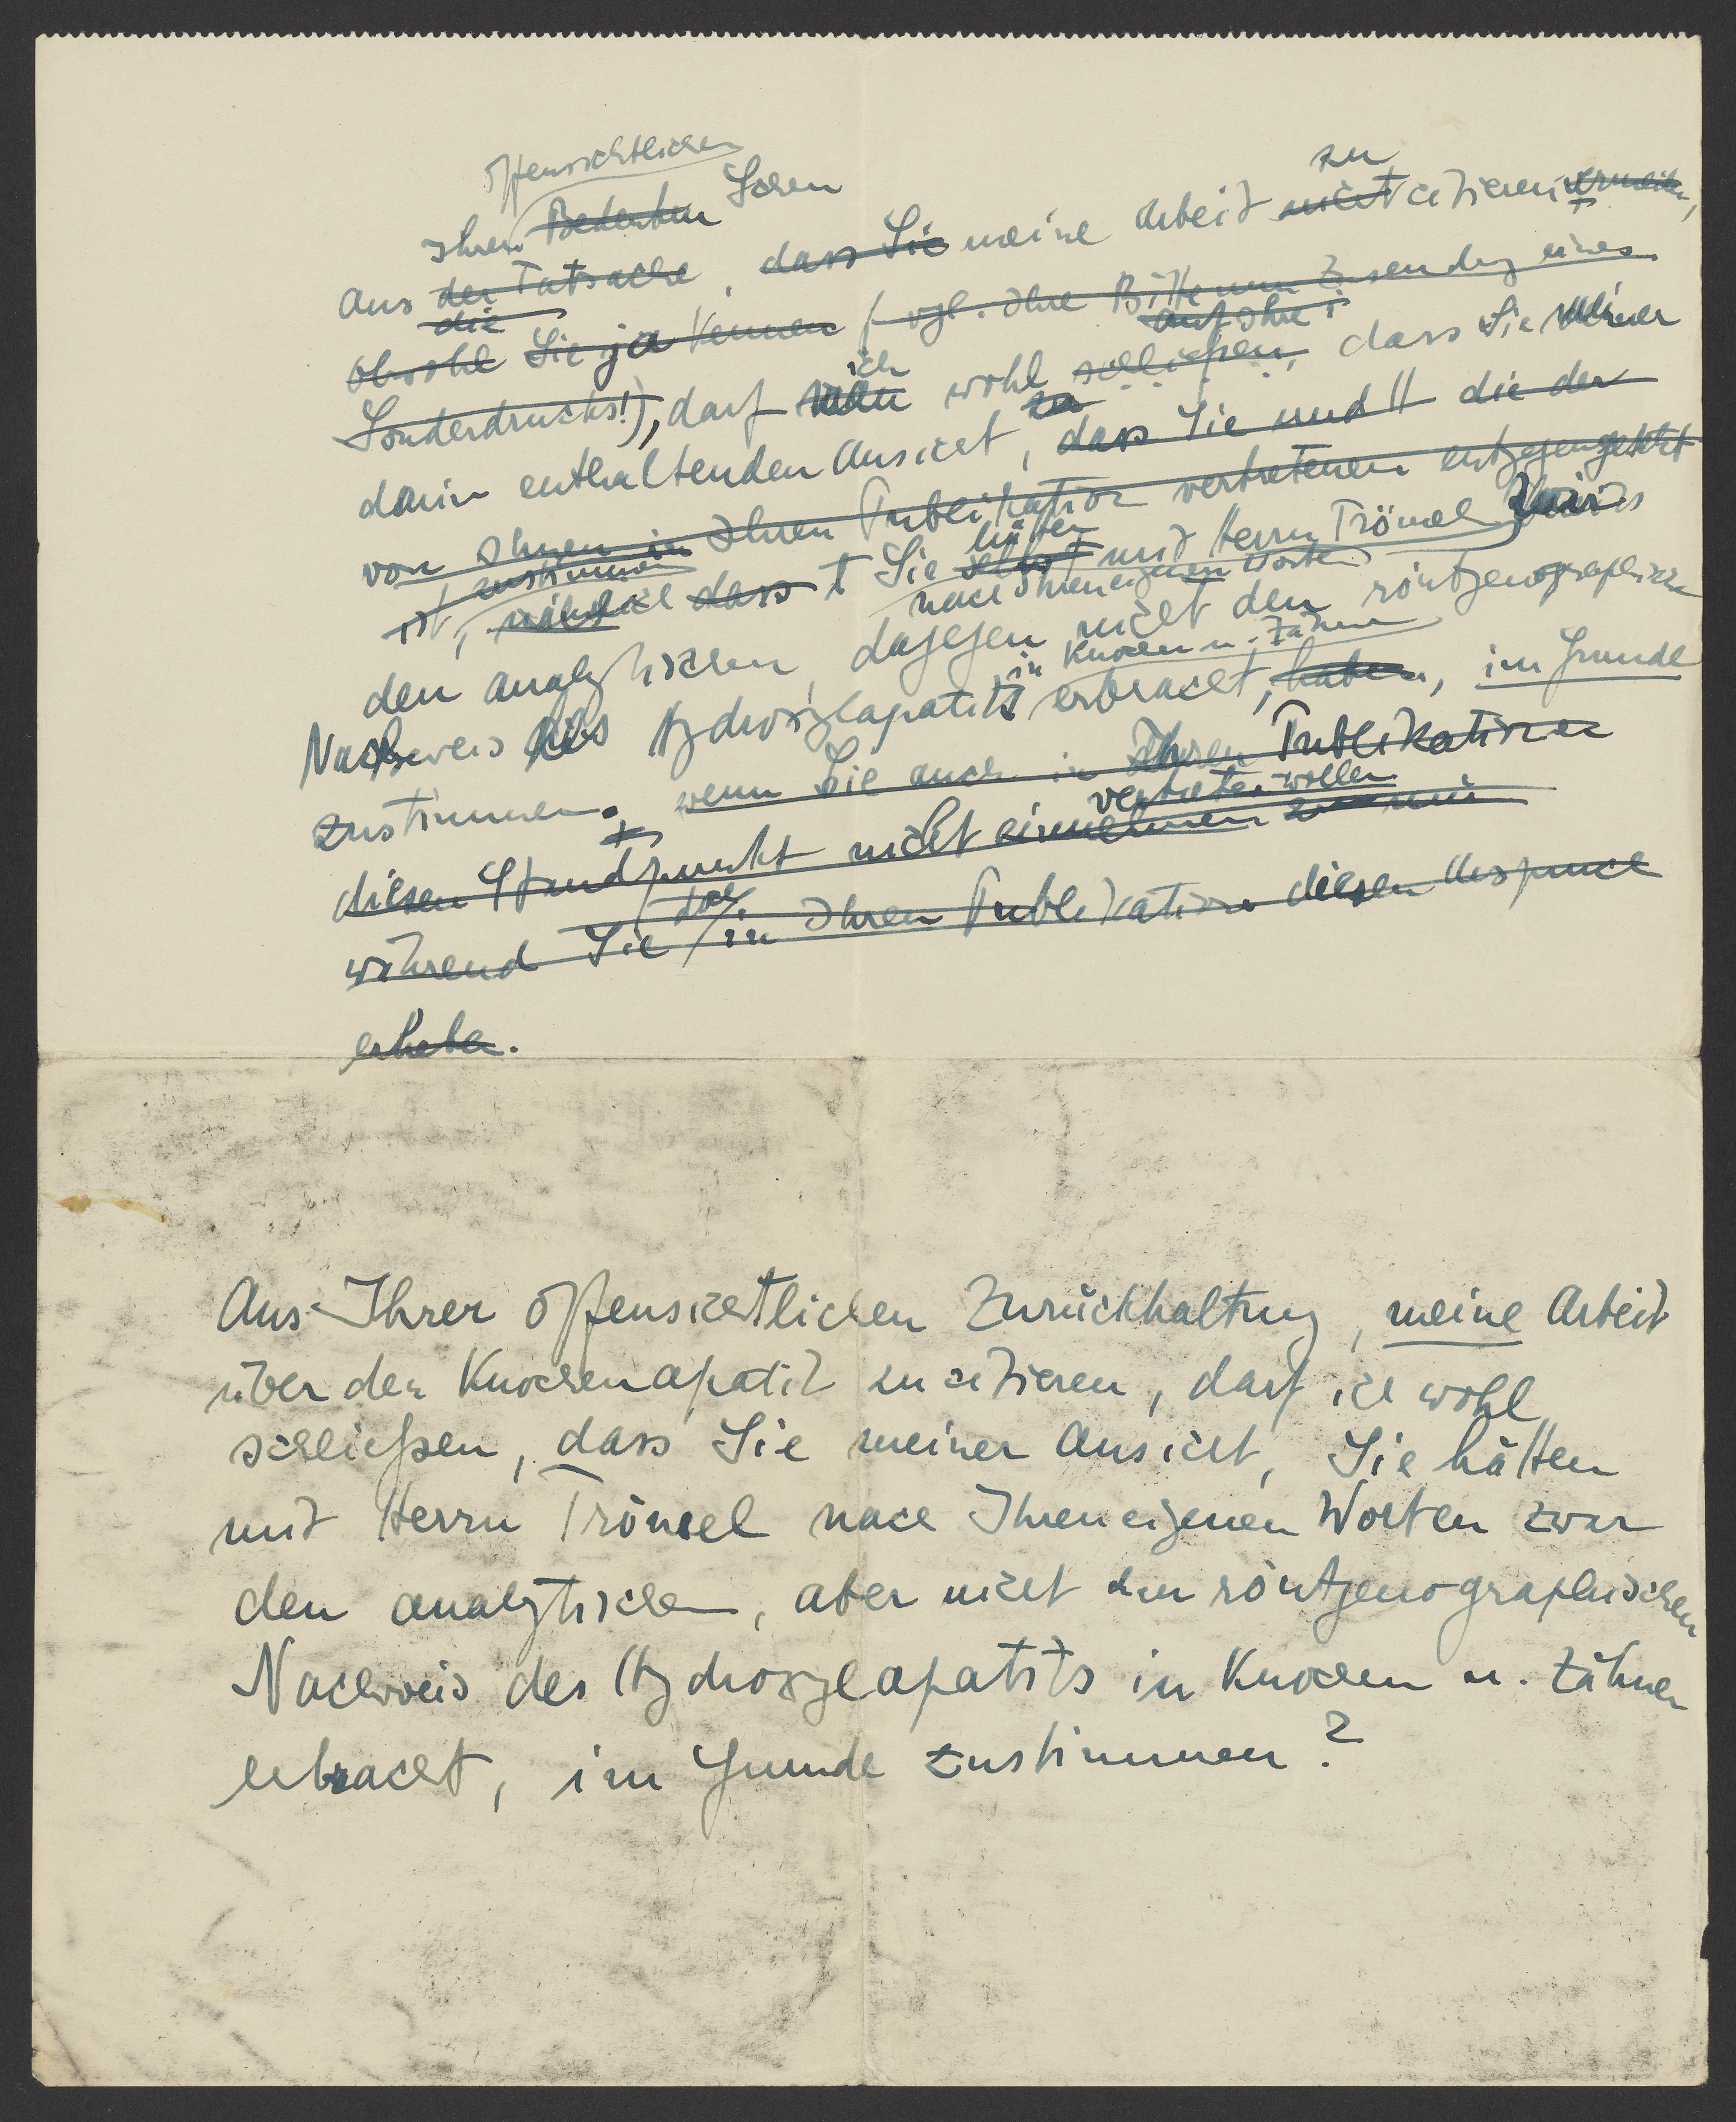 offensichtlichen
Ihren Bedenken Scheu
zu
Aus der Tatsache, dass Sie meine Arbeit nicht citieren
die
obwohl Sie ja kennen (vgl. Ihre Bitte um Zusendung eines
auf Ihre
Sonderdrucks!), darf ich wohl schließen, dass Sie meiner
darin enthaltenden Ansicht, dass Sie und die der
von Ihnen in Ihren Publikation vertretenen entgegengesetzt
ist, zustimmen dass Sie hätten selbst mit Herrn Trömel zwar
nach Ihren eigenen Worten
den analytischen, dagegen nicht den röntgenographischen
in Knochen u. Zähnen
Nachweis des Hydroxylapatits erbracht, haben, im Grunde
zustimmen. wenn Sie auch in Ihren Publikationen
vertreten wollen
diesen Standpunkt nicht einnehmen
während Sie doch in Ihren Publikation diesen Anspruch
erheben.
Aus Ihrer offensichtlichen Zurückhaltung, meine Arbeit
über den Knochenapatit zu citieren, darf ich wohl
schließen, dass Sie meiner Ansicht, Sie hätten
mit Herrn Trömel nach Ihren eigenen Worten zwar
den analytischen, aber nicht den röntgenographischen
Nachweis des Hydroxylapatits in Knochen u. Zähnen
erbracht, im Grunde zustimmen?